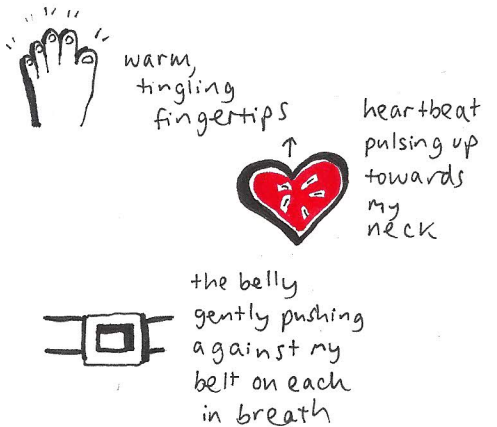 warm,
tingling
fingertips
heartbeat
pulsing up
towards
my
neck
the belly
gently pushing
against my
belt on each
in breath